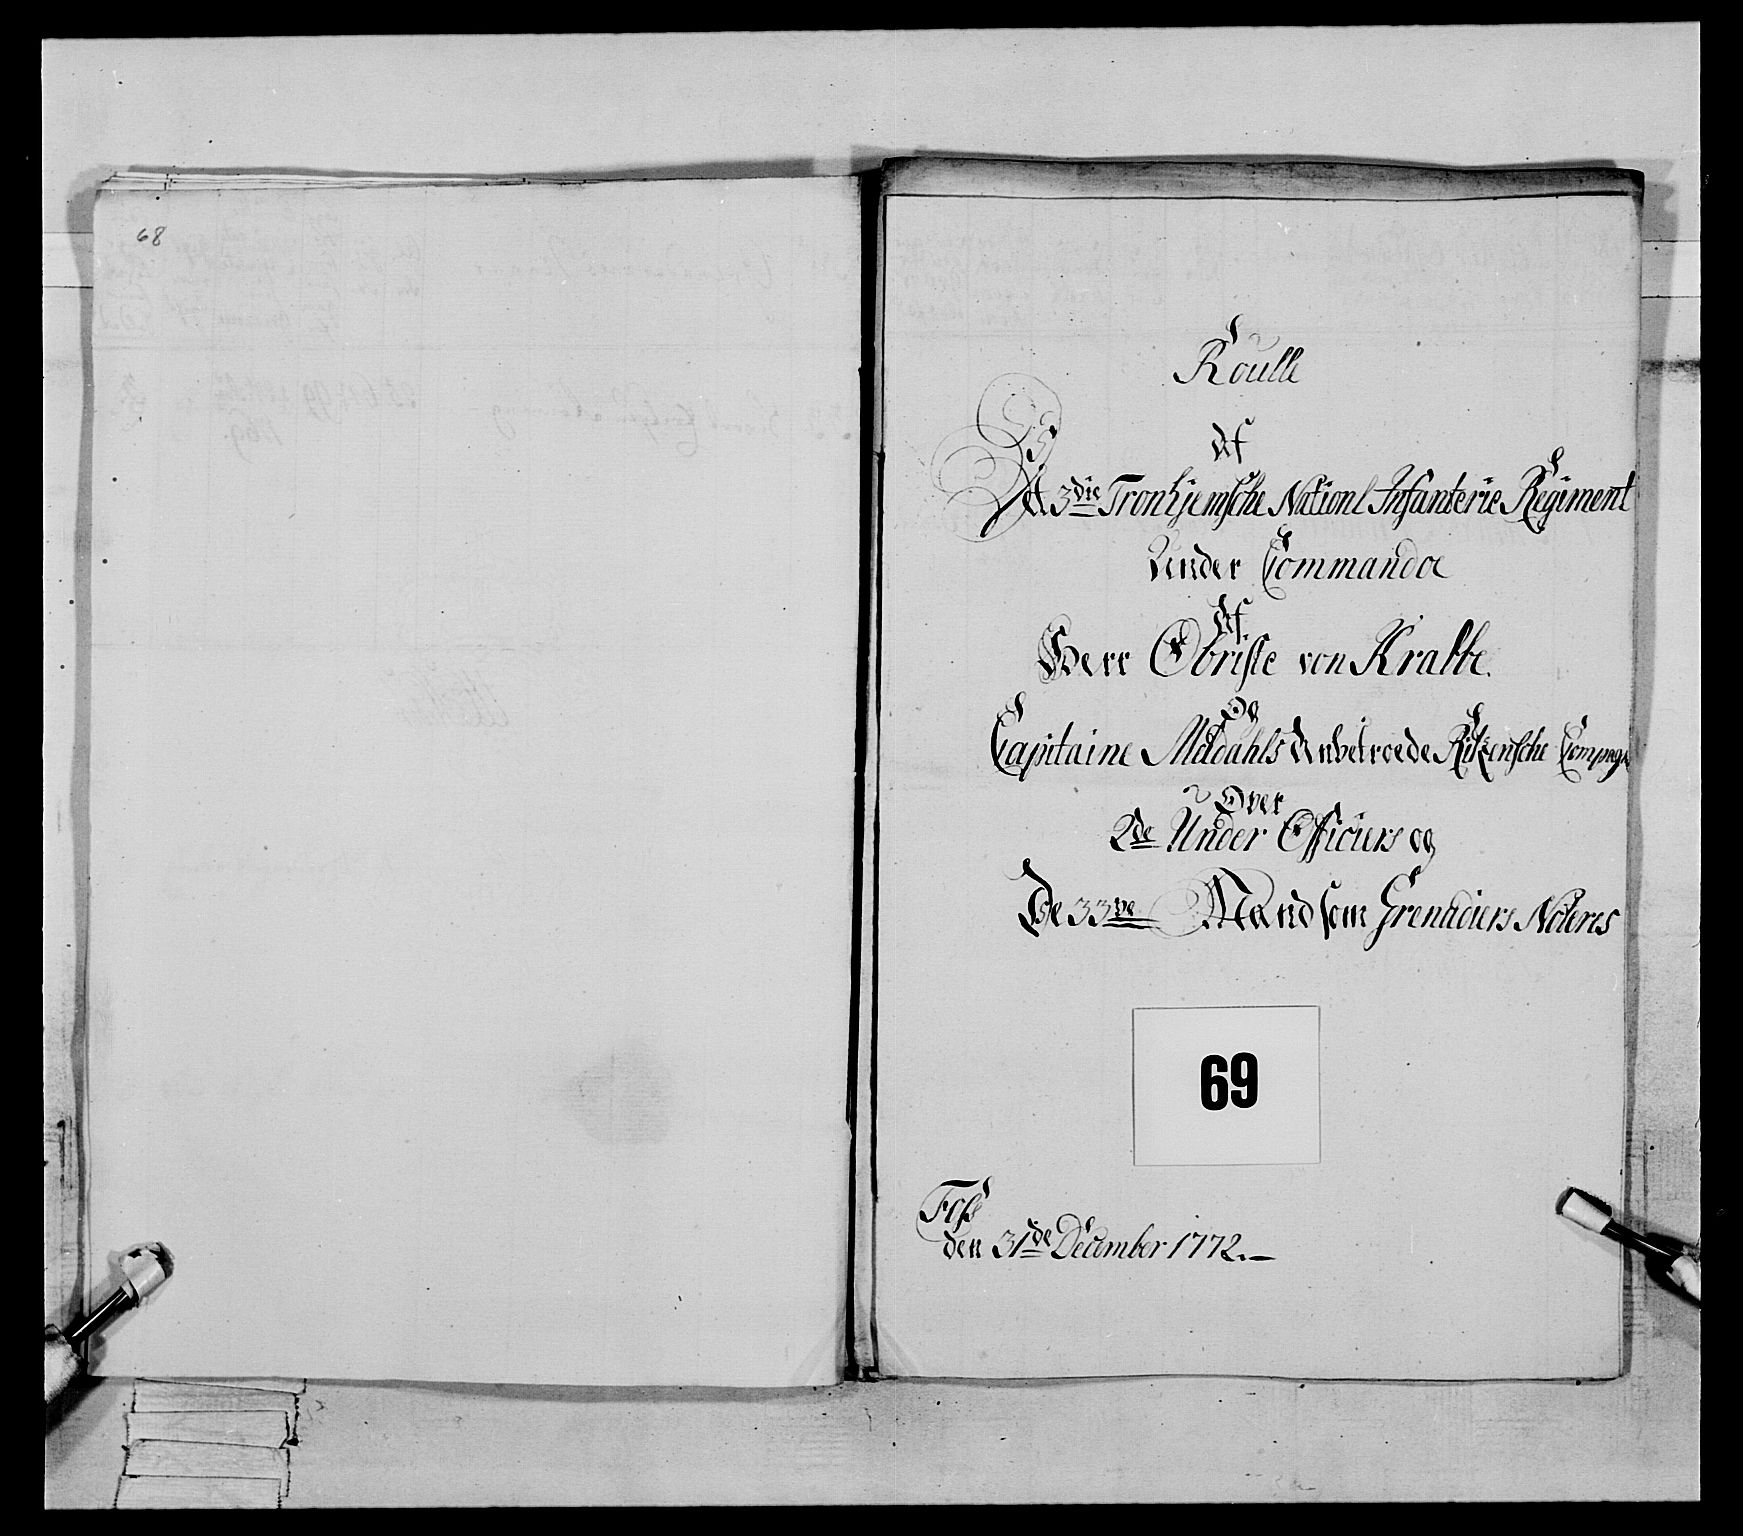 68
Roulle
Af
Det 3die Tronhjemsche Nationl Infanterie Regiment
Under Commando
Af
Herr Obriste von Krabbe.
Og
Capitaine Meldahls Anbetroede Risensche
Over
2de Under Officiers og
De 33ve Mand som Grenadiers Noteres
69
Foss
den 31de December 1772.